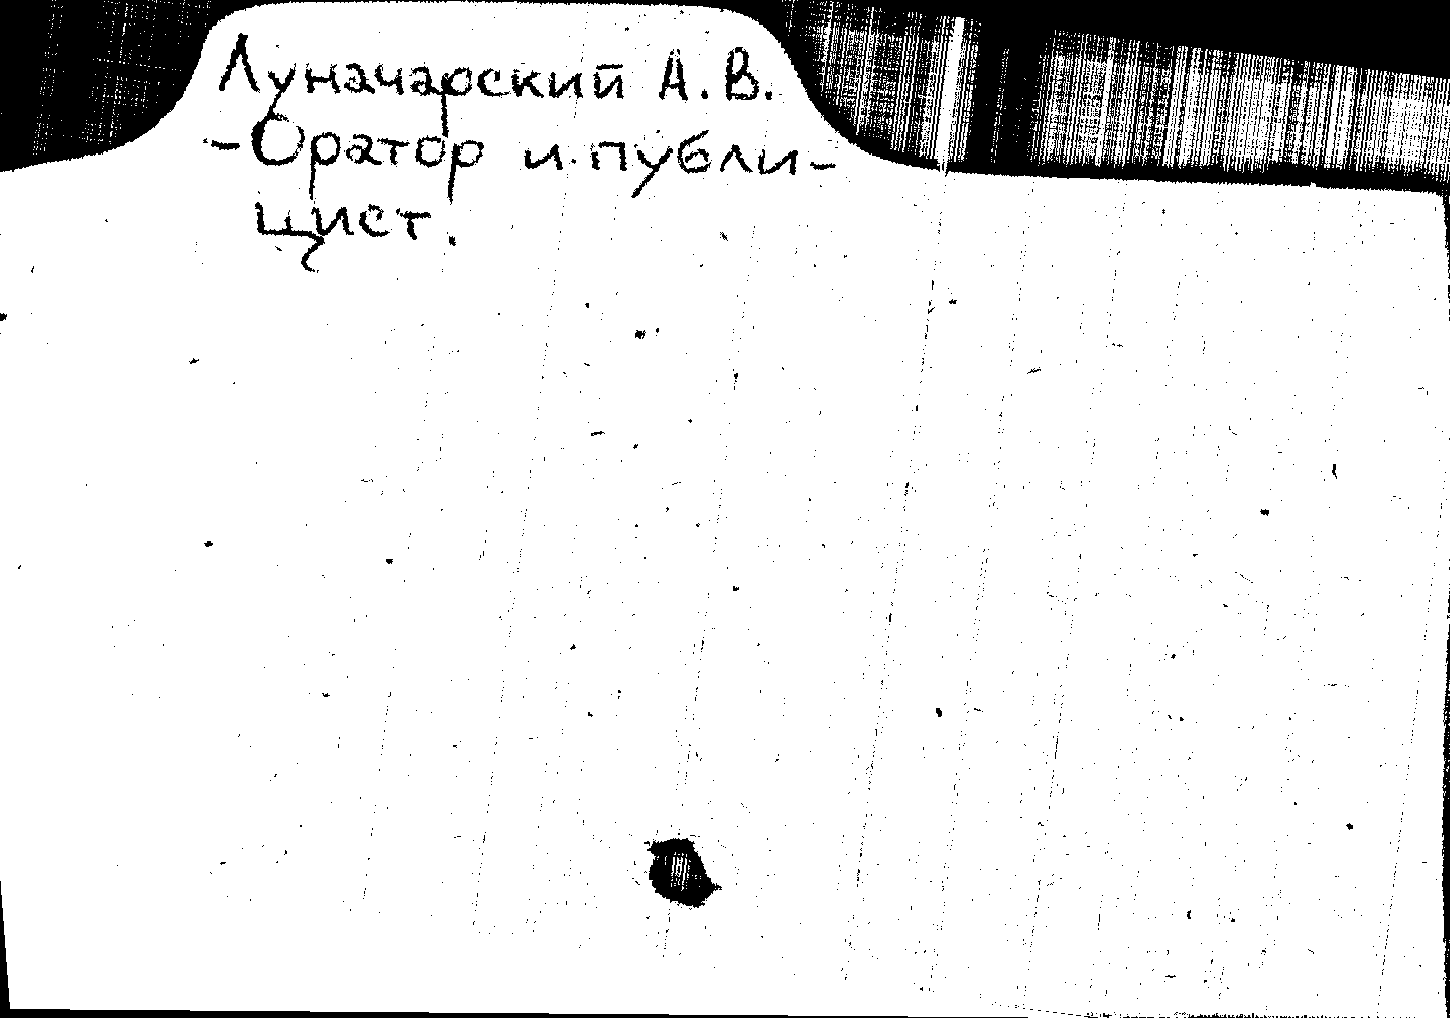 Луначарский А.В.
-Оратор и публи-
цист.